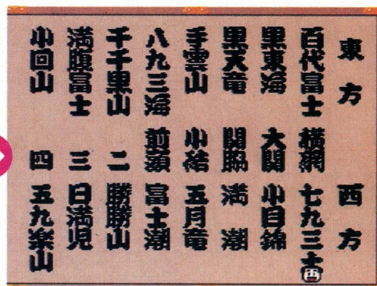 東方 西方
百代富士 横綱 七九三士
黒東海 大関 小目錦
黒天竜 関脇 満潮
手雲山 小結 五月竜
八九三海 前頭 富士潮
千千黒山 二 勝勝山
満腹富士 三 日満児
小回山 四 五九楽山